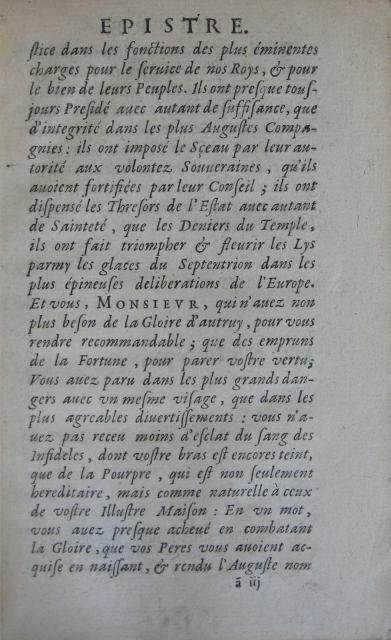 EPISTRE.
ſtice dans les fonctions des plus éminentes
charges pour le ſervice de nos Roys, & pour
le bien de leurs Peuples. Ils ont preſque touſ-
jours Preſidé auec autant de ſuffiſance, que
d'integrité dans les plus Auguſtes Compa-
gnies : ils ont impoſé le Sceau par leur au-
torité aux volontez Souueraines, qu'ils
auoient fortifiées par leur Conſeil ; ils ont
diſpenſé les Threſors de l'Eſtat auec autant
de Sainteté, que les Deniers du Temple,
ils ont fait triompher & fleurir les Lys
parmy les glaces du Septentrion dans les
plus épineuſes deliberations de l'Europe.
Et vous, MONSIEVR, qui n'auez non
plus beſon de la Gloire d'autruy, pour vous
rendre recommandable ; que des empruns
de la Fortune, pour parer voſtre vertu;
Vous auez paru dans les plus grands dan-
gers auec vn meſme viſage, que dans les
plus agreables diuertiſſements : vous n'a-
uez pas receu moins d'eſclat du ſang des
Infideles, dont voſtre bras eſt encores teint,
que de la Pourpre, qui eſt non ſeulement
hereditaire, mais comme naturelle à ceux
de voſtre Illuſtre Maiſon : En vn mot,
vous auez preſque acheué en combatant
la Gloire, que vos Peres vous auoient ac-
quiſe en naiſſant, & rendu l'Auguſte nom
ã iij